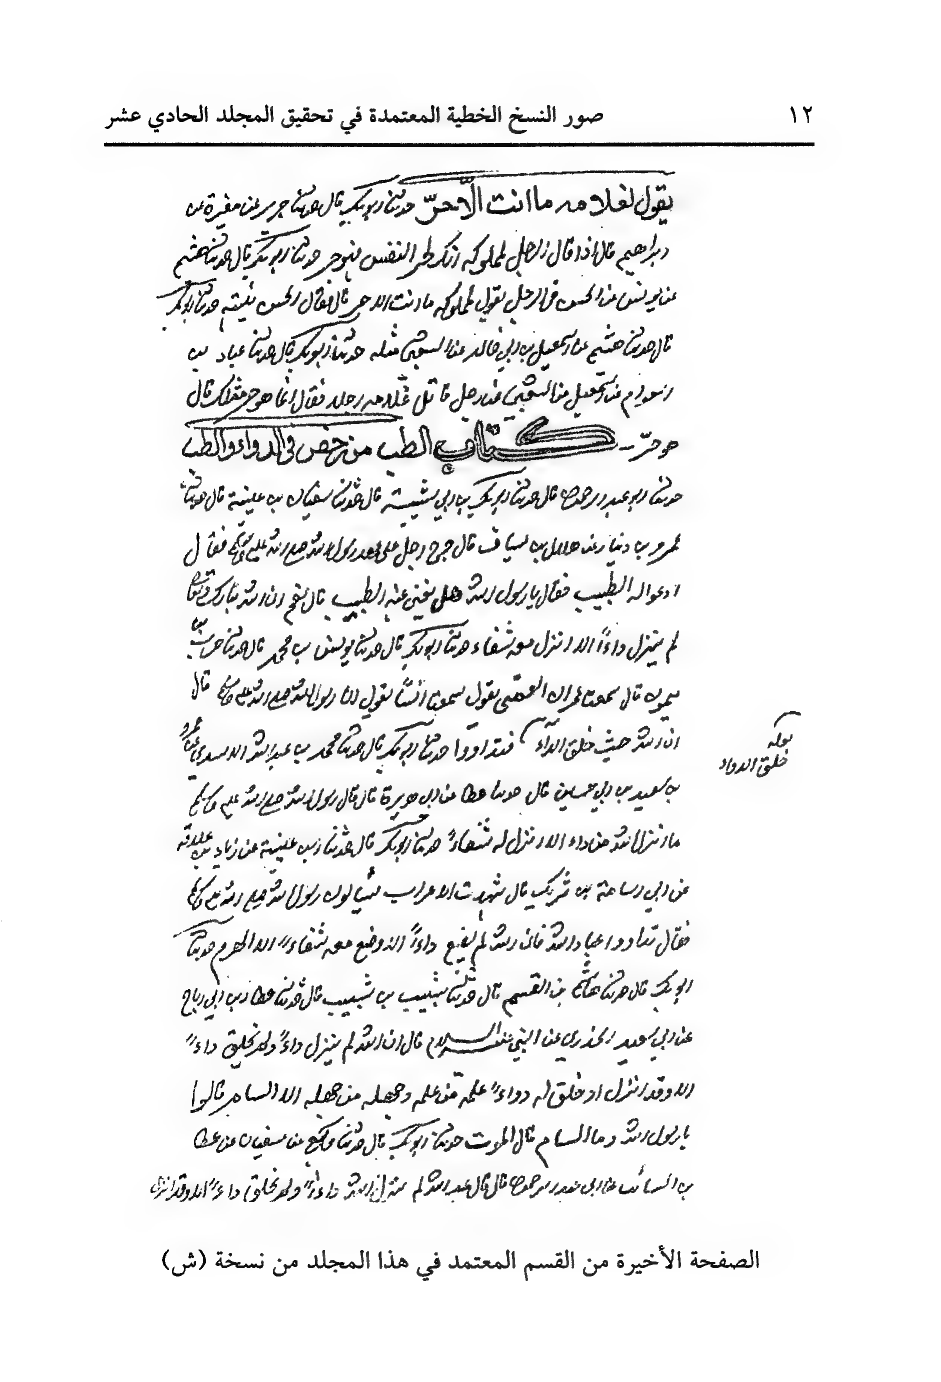 ١٢ صور النسخ الخطية المعتمدة في تحقيق المجلد الحادي عشر
يقول لغلامه ما انت الا حر حدثنا ابو بكر قال حدثنا جرير عن مغيرة عن
ابراهيم قال اذا قال الرجل لمملوكه انك لحر النفس فهو حر حدثنا ابو بكر قال حدثنا هشيم
عن يونس عن الحسن في الرجل يقول لمملوكه ما انت الا حر قال فقال الحسن نيته حدثنا ابو بكر
قال حدثنا هشيم عن اسمعيل بن ابي خالد عن الشعبي مثله حدثنا ابو بكر قال حدثنا عباد بن
عن اسمعيل عن الشعبي عن رجل قاتل غلامه رجلا فقال انما هو حر مثلك قال
هو حر كتاب الطب من رخص في الدواء والطب
حدثنا ابو عبد الرحمن قال حدثنا ابو بكر بن ابي شيبة قال حدثنا سفيان بن عيينة قال حدثنا
عمرو بن دينار عن هلال بن يساف قال جرح رجل على عهد رسول الله صلى الله عليه وسلم فقال
ادعوا له الطبيب فقال يا رسول الله هل يغني عنه الطبيب قال نعم ان الله تبارك وتعالى
لم ينزل داءاً الا انزل معه شفاء حدثنا ابو بكر قال حدثنا يونس بن محمد قال حدثنا حرب بن
ميمون قال سمعت عمران العمي يقول سمعت انساً يقول ان رسول الله صلى الله عليه وسلم قال
ان الله حيث خلق الداء فتداووا حدثنا ابو بكر قال حدثنا محمد بن عبد الله الاسدي عن عمر
قوله
خلق الدواء
بن سعيد بن ابي حسين قال حدثنا عطا عن ابي هريرة قال قال رسول الله صلى الله عليه وسلم
ما انزل الله من داء الا انزل له شفاءً حدثنا ابو بكر قال حدثنا ابن عيينة عن زياد بن علاقة
عن اسامة بن شريك قال شهدت الاعراب يسالون رسول الله صلى الله عليه وسلم
فقال تداووا عباد الله فان الله لم يضع داءً الا وضع معه شفاءً الا الهرم حدثنا
ابو بكر قال حدثنا هاشم بن القسم قال حدثنا شبيب بن شيبة قال حدثنا عطا بن ابي رباح
عن ابي سعيد الخدري عن النبي عليه السلام قال ان الله لم ينزل داءً ولم يخلق داءً
الا وقد انزل او خلق له دواءً علمه من علمه وجهله من جهله الا السام قالوا
يا رسول الله وما السام قال الموت حدثنا ابو بكر قال حدثنا وكيع عن سفيان عن عطا
بن السائب عن ابي عبد الرحمن قال قال عبد الله لم ينزل الله داءً ولم يخلق داءً الا وقد انزل
الصفحة الأخيرة من القسم المعتمد في هذا المجلد من نسخة (ش)